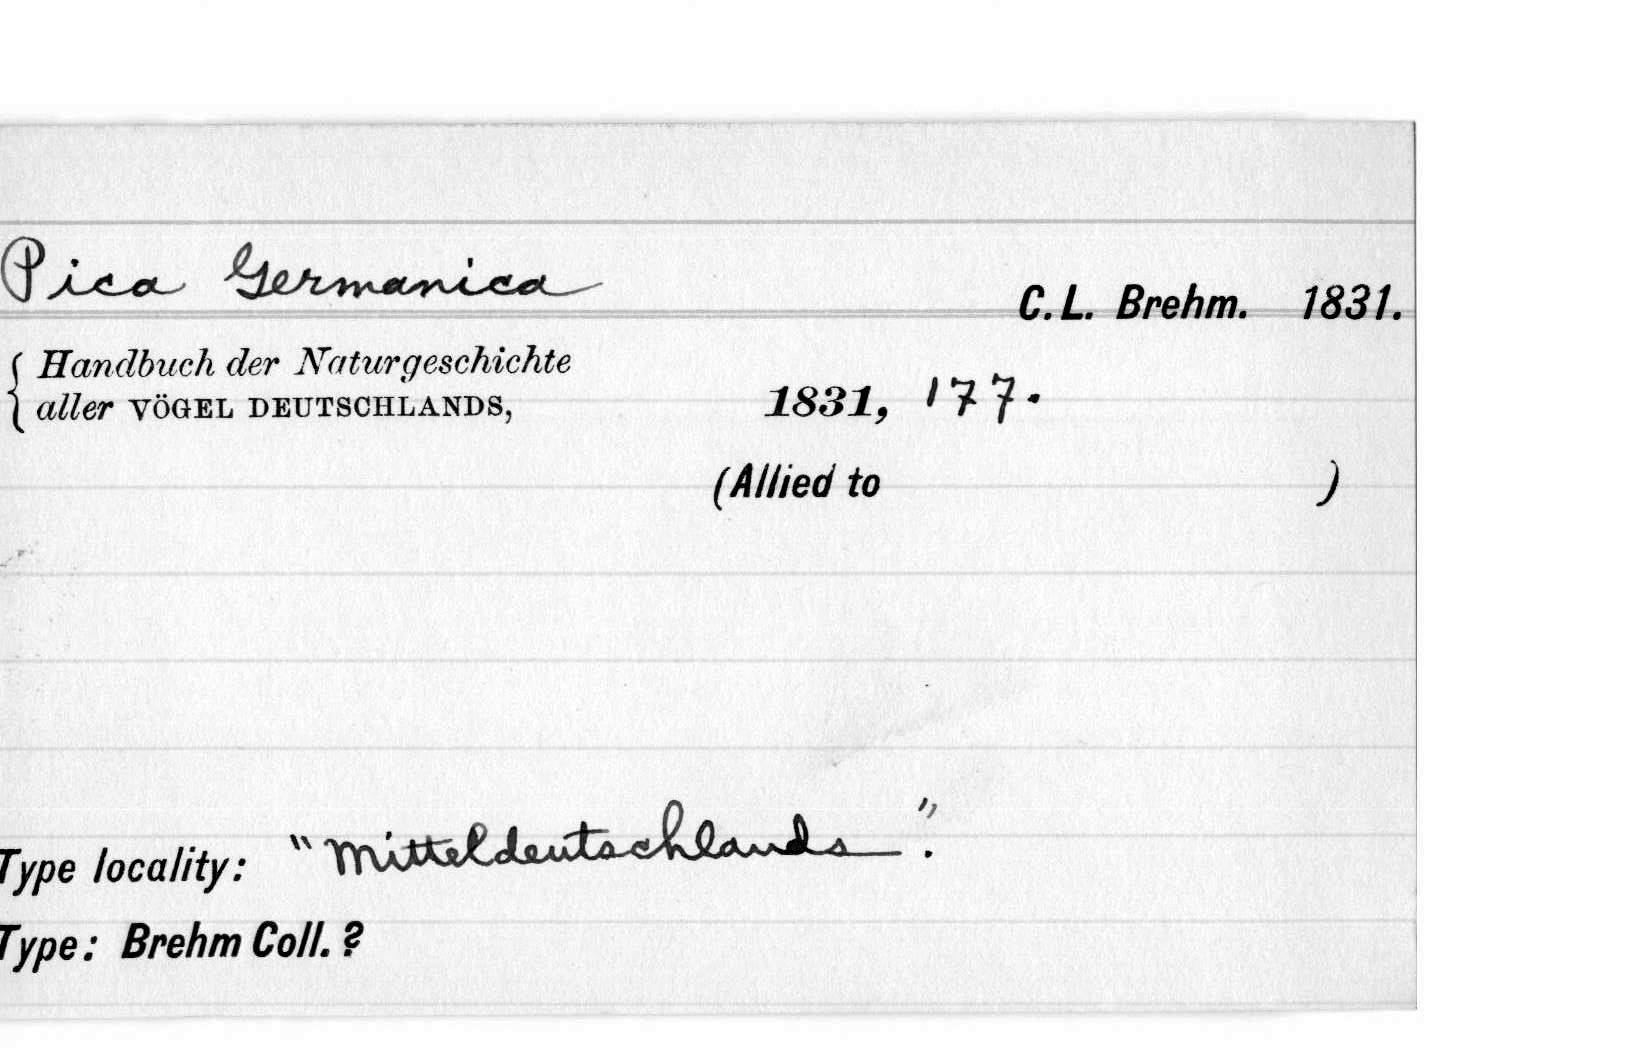 Pica Germanica
C. L. Brehm. 1831.
Handbuch der Naturgeschichte
aller VÖGEL DEUTSCHLANDS,
1831, 177.
(Allied to )
Type locality: "Mitteldeutschlands".
Type: Brehm Coll. ?